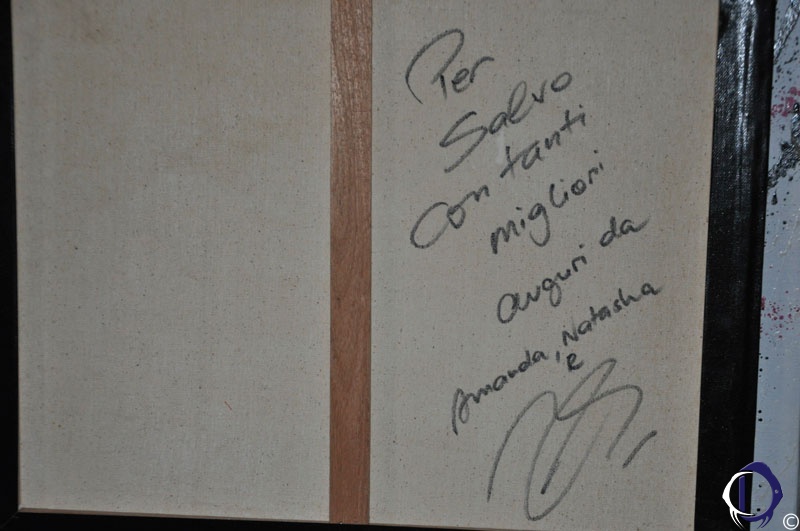 Per
Salvo
con tanti
migliori
auguri da
Amanda, Natasha
e
©